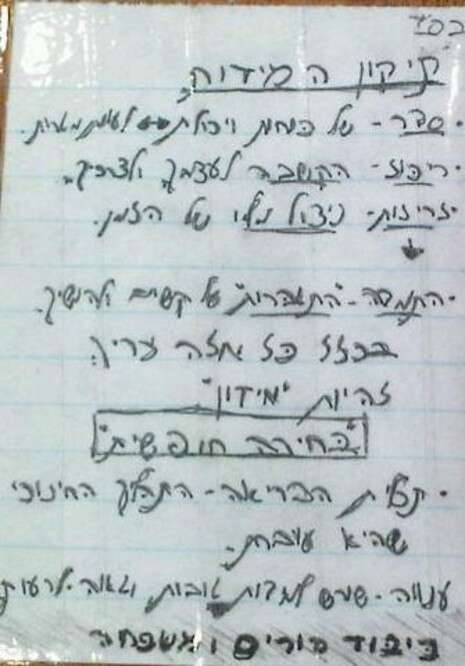 בסד
תיקון המידות
·סדר - של כוחות ויכולת
·ריכוז - הקשבה לעצמך ולצרכיך.
·זריזות - ניצול מלא של הזמן.
·התמדה - "התגברות" על קשיים ולהמשיך.
בכלל כל אחד צריך
להיות "מידון"
"בחירה חופשית"
·תכלית הבריאה - התהליך החינוכי
שהיא עוברת.
ענווה - שורש למידות טובות, וגאוה - לרעות
כיבוד הורים ומשפחה